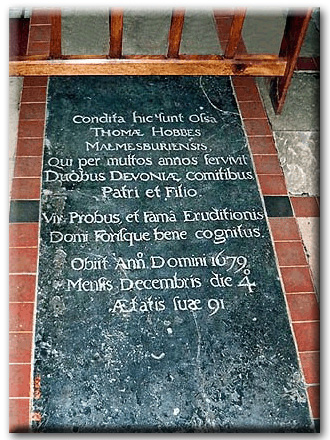 Condita hic Sunt Ossa
THOMÆ HOBBES
MALMESBURIENSIS,
Qui per multos annos servivit
Duobus DEVONIÆ comitibus,
Patri et Filio.
Vir Probus, et famâ Eruditionis
Domi Forisque bene cognitus.
Obiit Ann. Domini 1679,
Mensis Decembris die 4°
Ætatis suæ 91